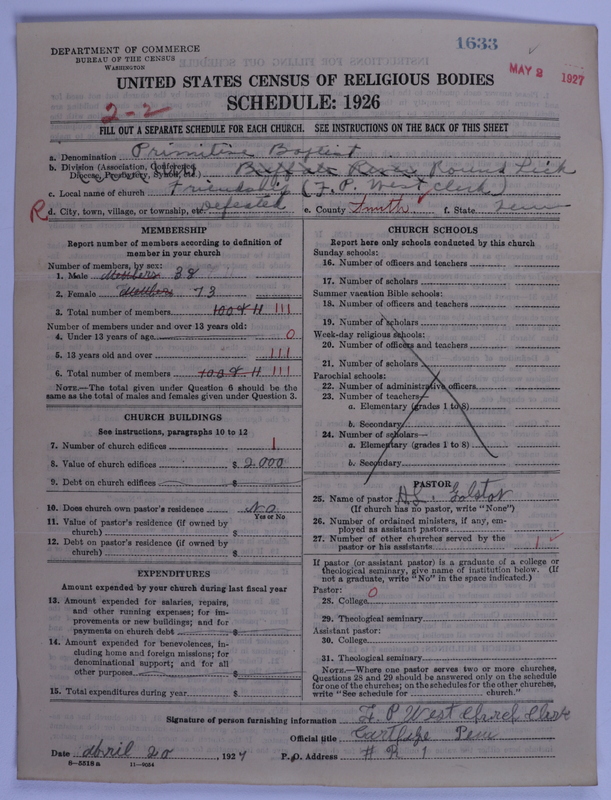 1633
DEPARTMENT OF COMMERCE
BUREAU OF THE CENSUS
WASHINGTON
MAY 2 1927
UNITED STATES CENSUS OF RELIGIOUS BODIES
SCHEDULE: 1926
2-2
FILL OUT A SEPARATE SCHEDULE FOR EACH CHURCH. SEE INSTRUCTIONS ON THE BACK OF THIS SHEET
a. Denomination Primitive Baptist
b. Division (Association, Conference, Diocese, Presbytery, Synod, etc.) Round Lick
c. Local name of church Friendship (F. P. West clerk)
R d. City, town, village, or township, etc. Defeated e. County Smith f. State Tenn
MEMBERSHIP
Report number of members according to definition of
member in your church
Number of members, by sex:
1. Male Members 38
2. Female Members 73
3. Total number of members 111
Number of members under and over 13 years old:
4. Under 13 years of age 0
5. 13 years old and over 111
6. Total number of members 111
NOTE.—The total given under Question 6 should be the
same as the total of males and females given under Question 3.
CHURCH BUILDINGS
See instructions, paragraphs 10 to 12
7. Number of church edifices 1
8. Value of church edifices $ 2.000
9. Debt on church edifices $
10. Does church own pastor's residence No
Yes or No
11. Value of pastor's residence (if owned by
church) $
12. Debt on pastor's residence (if owned by
church) $
EXPENDITURES
Amount expended by your church during last fiscal year
13. Amount expended for salaries, repairs,
and other running expenses; for im-
provements or new buildings; and for
payments on church debt $
14. Amount expended for benevolences, in-
cluding home and foreign missions; for
denominational support; and for all
other purposes $
15. Total expenditures during year $
CHURCH SCHOOLS
Report here only schools conducted by this church
Sunday schools:
16. Number of officers and teachers
17. Number of scholars
Summer vacation Bible schools:
18. Number of officers and teachers
19. Number of scholars
Week-day religious schools:
20. Number of officers and teachers
21. Number of scholars
Parochial schools:
22. Number of administrative officers
23. Number of teachers—
a. Elementary (grades 1 to 8)
b. Secondary
24. Number of scholars—
a. Elementary (grades 1 to 8)
b. Secondary
PASTOR
25. Name of pastor
(If church has no pastor, write "None")
26. Number of ordained ministers, if any, em-
ployed as assistant pastors
27. Number of other churches served by the
pastor or his assistants 1
If pastor (or assistant pastor) is a graduate of a college or
theological seminary, give name of institution below. (If
not a graduate, write "No" in the space indicated.)
Pastor: 0
28. College
29. Theological seminary
Assistant pastor:
30. College
31. Theological seminary
NOTE.—Where one pastor serves two or more churches,
Questions 28 and 29 should be answered only on the schedule
for one of the churches; on the schedules for the other churches,
write "See schedule for church."
Signature of person furnishing information F. P West Church Clerk
Official title Carthage Tenn
Date April 20, 1927 P. O. Address # R 1
8—5518a 11—9034